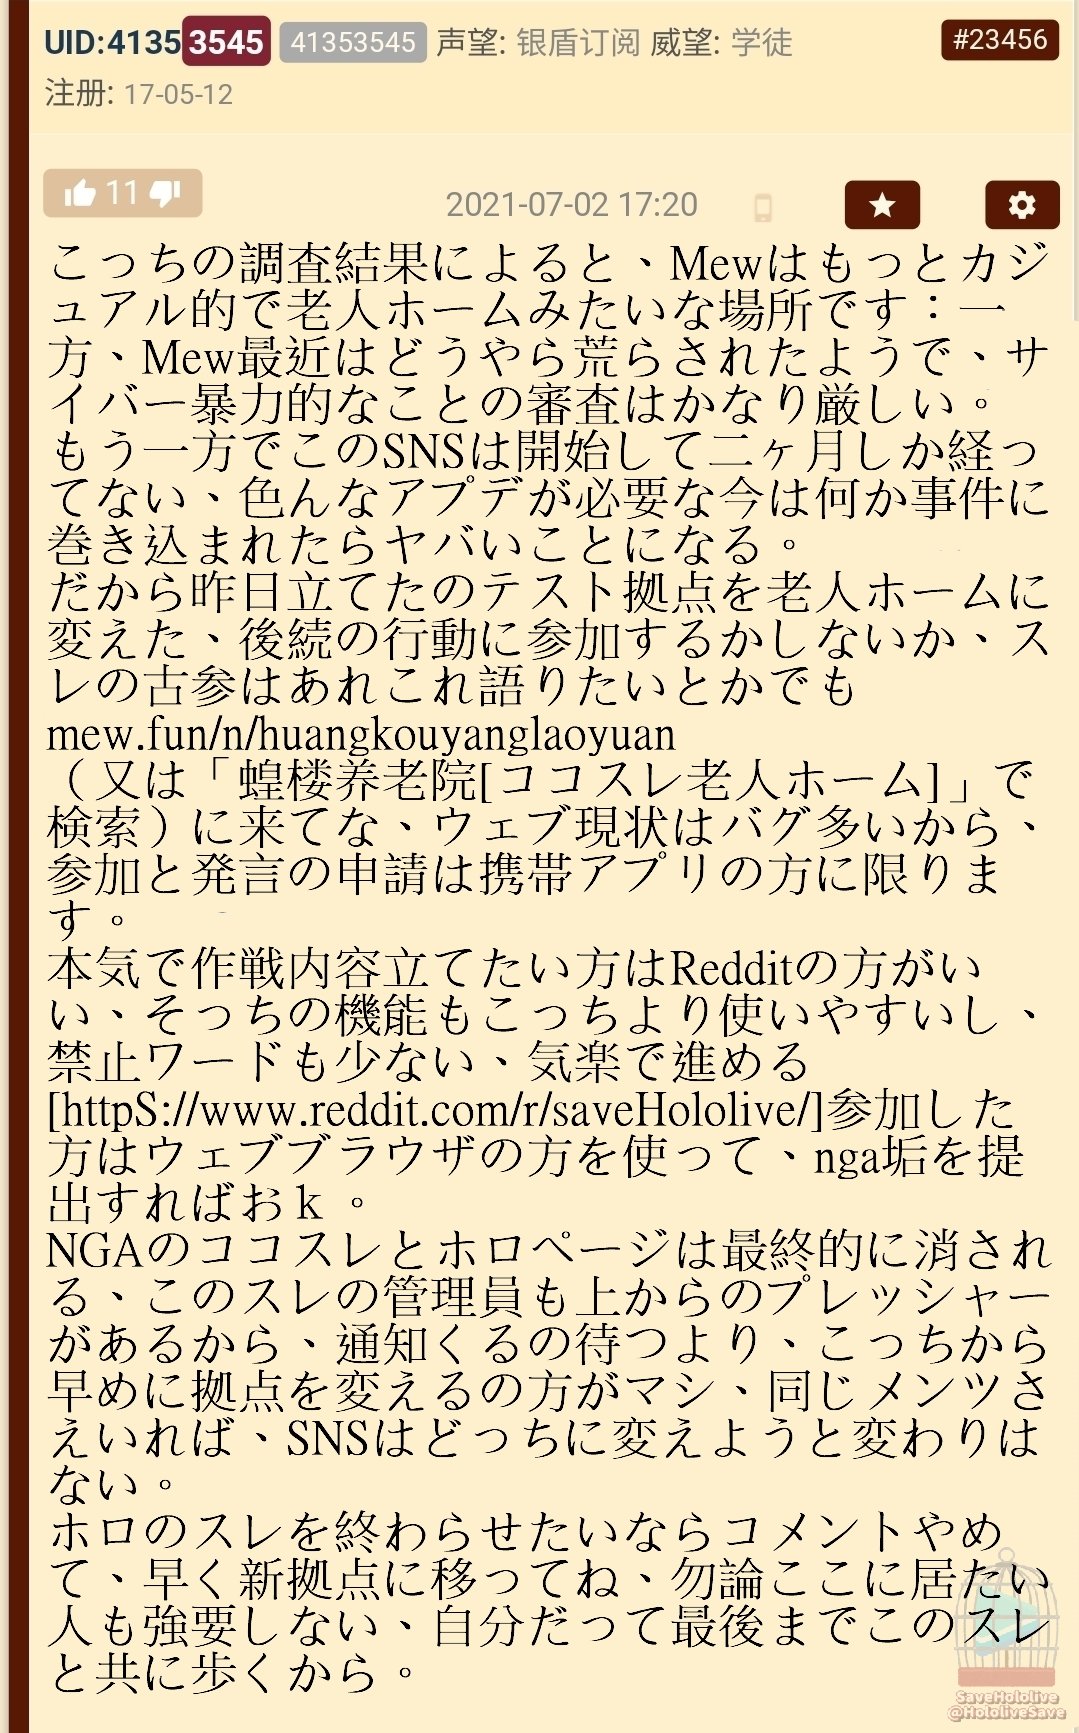 UID:41353545 41353545 声望: 银盾订阅 威望: 学徒 #23456
注册: 17-05-12
11 2021-07-02 17:20
こっちの調査結果によると、Mewはもっとカジ
ュアル的で老人ホームみたいな場所です：一
方、Mew最近はどうやら荒らされたようで、サ
イバー暴力的なことの審査はかなり厳しい。
もう一方でこのSNSは開始して二ヶ月しか経っ
てない、色んなアプデが必要な今は何か事件に
巻き込まれたらヤバいことになる。
だから昨日立てたのテスト拠点を老人ホームに
変えた、後続の行動に参加するかしないか、ス
レの古参はあれこれ語りたいとかでも
mew.fun/n/huangkouyanglaoyuan
（又は「蝗楼养老院[ココスレ老人ホーム]」で
検索）に来てな、ウェブ現状はバグ多いから、
参加と発言の申請は携帯アプリの方に限りま
す。
本気で作戦内容立てたい方はRedditの方がい
い、そっちの機能もこっちより使いやすいし、
禁止ワードも少ない、気楽で進める
[httpS://www.reddit.com/r/saveHololive/]参加した
方はウェブブラウザの方を使って、nga垢を提
出すればおｋ。
NGAのココスレとホロページは最終的に消され
る、このスレの管理員も上からのプレッシャー
があるから、通知くるの待つより、こっちから
早めに拠点を変えるの方がマシ、同じメンツさ
えいれば、SNSはどっちに変えようと変わりは
ない。
ホロのスレを終わらせたいならコメントやめ
て、早く新拠点に移ってね、勿論ここに居たい
人も強要しない、自分だって最後までこのスレ
と共に歩くから。
SaveHololive
@HololiveSave